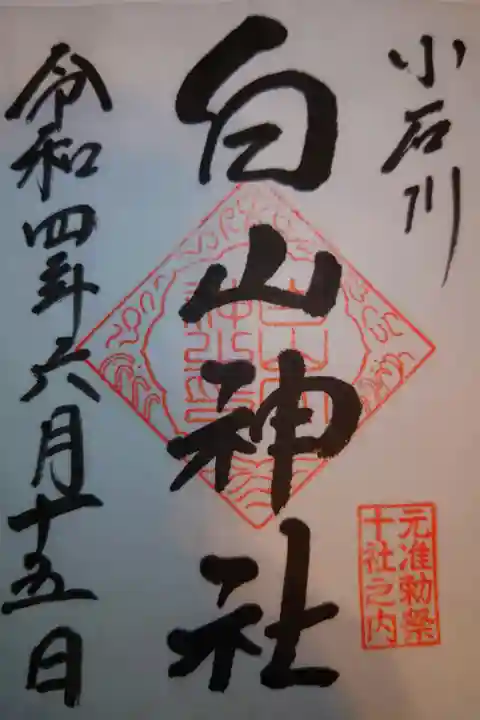 小石川
白山神社
令和四年六月十五日
元准勅祭
十社之内